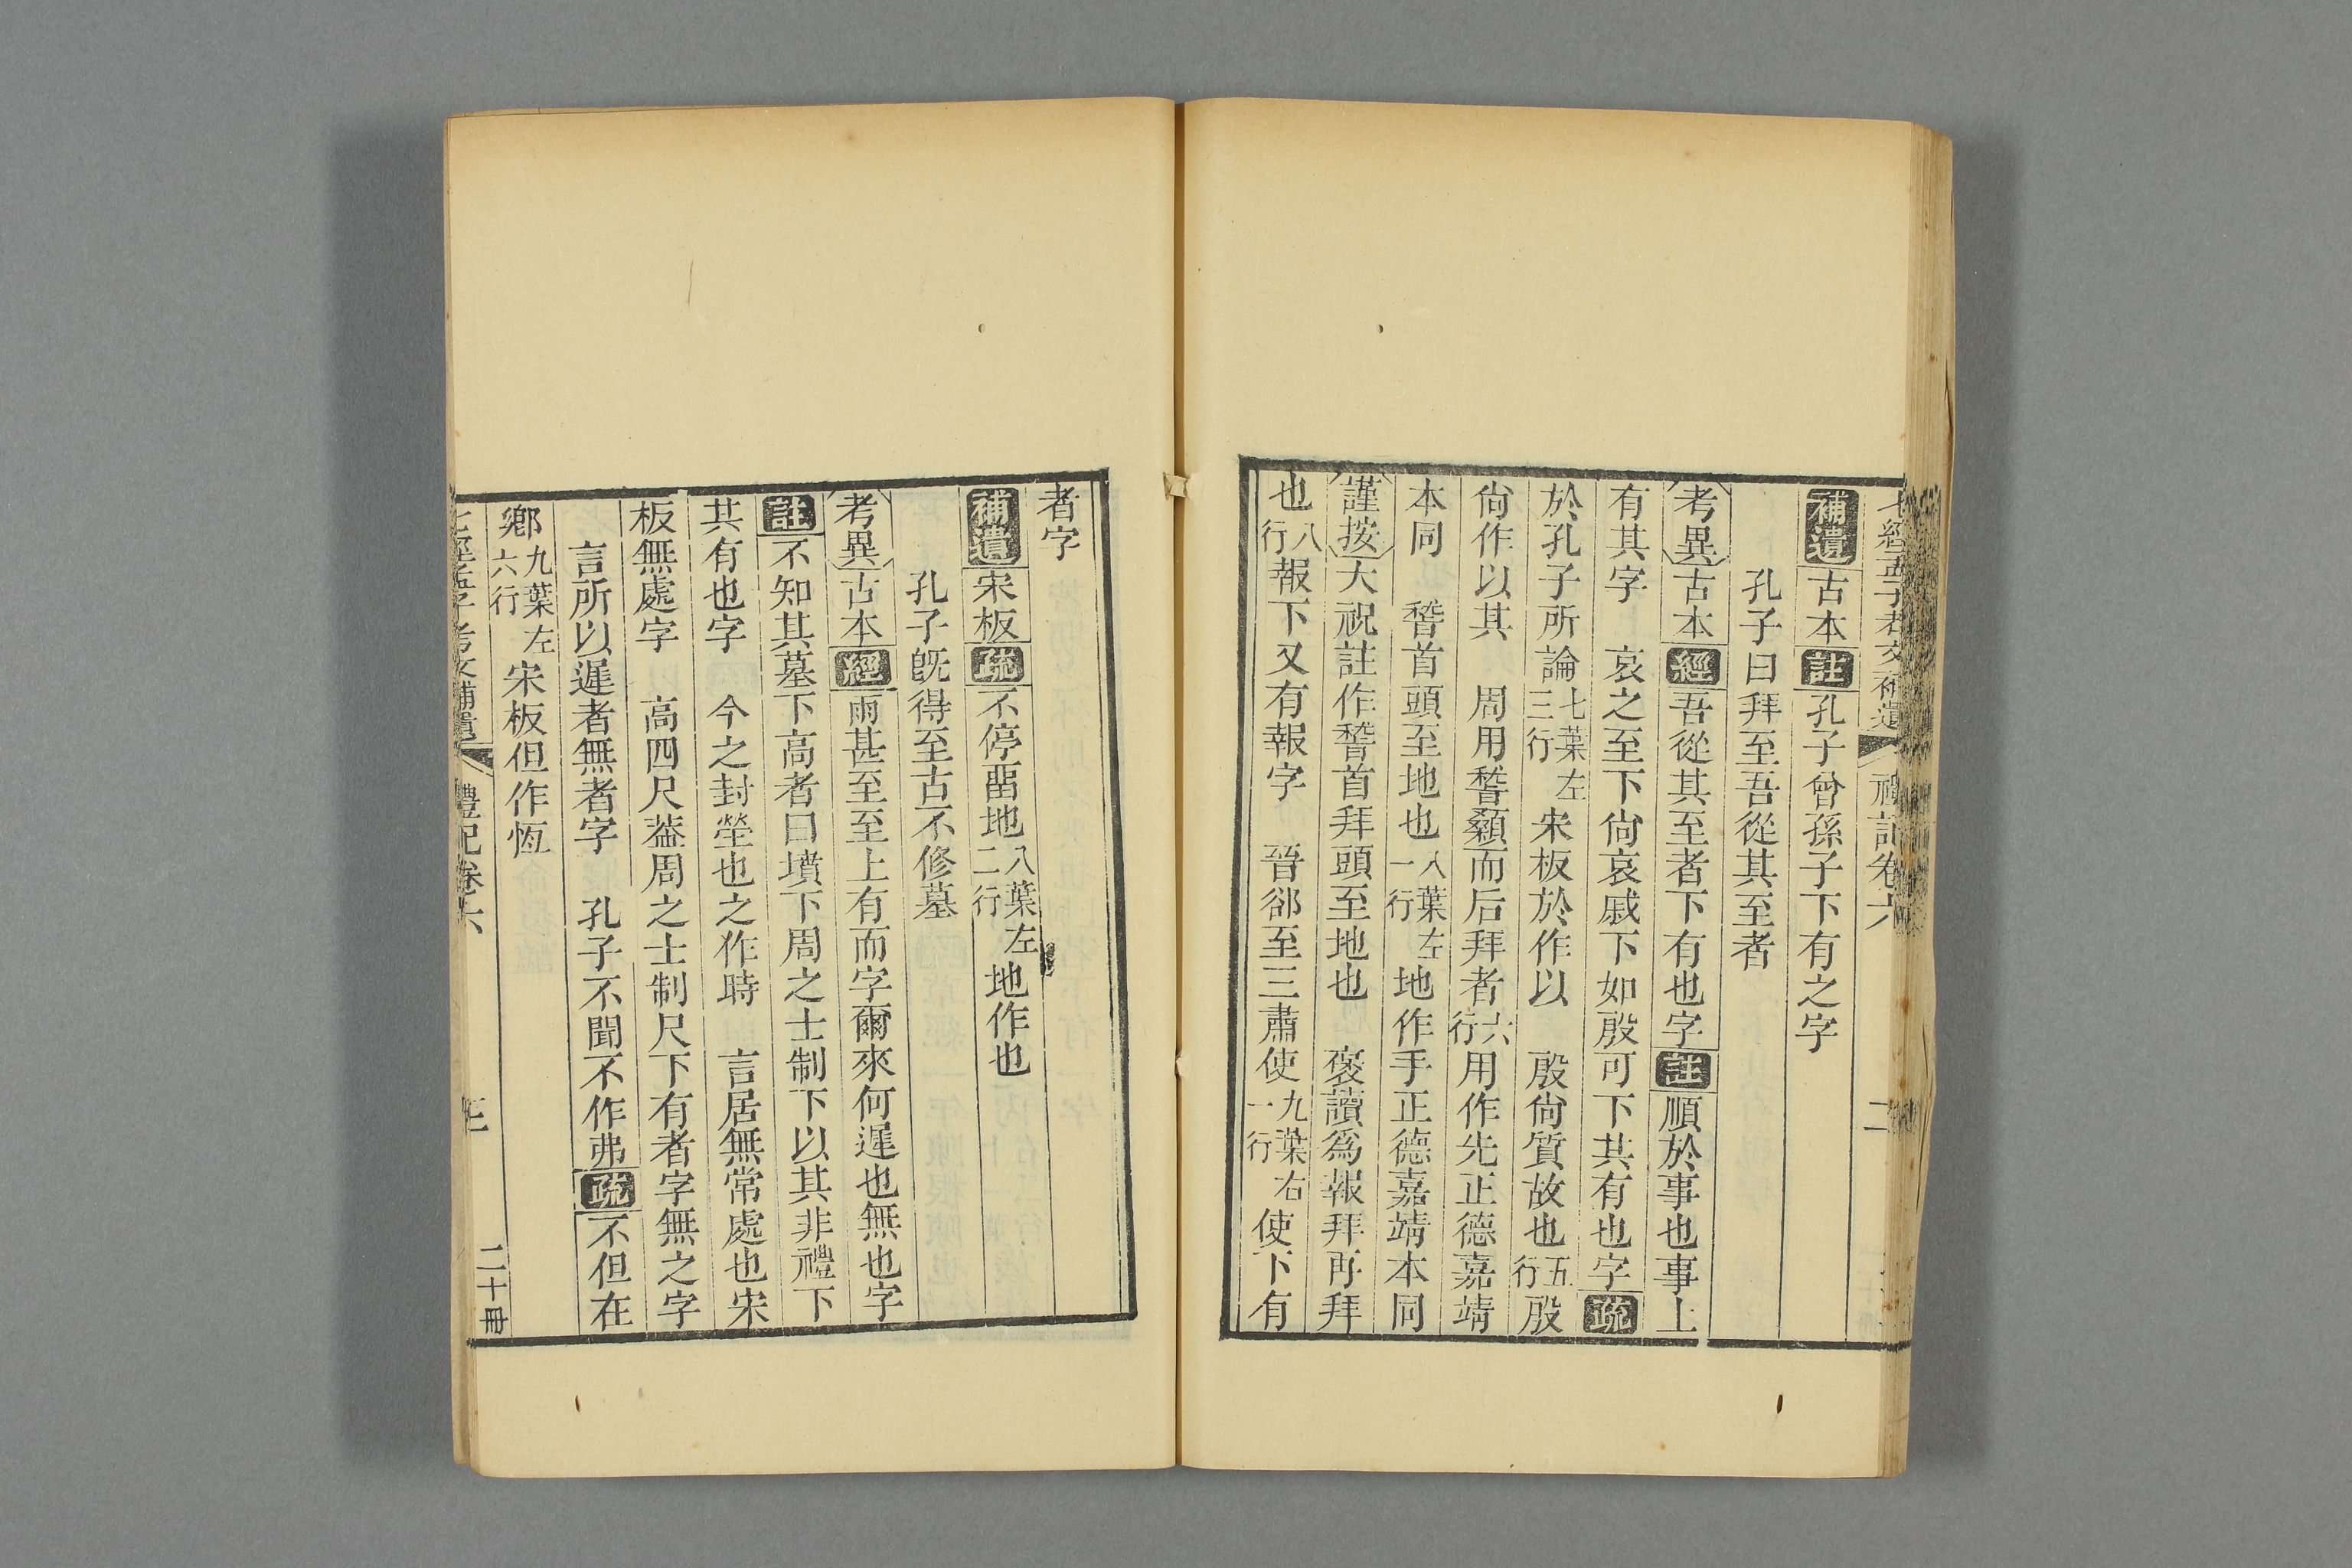 七經孟子考文補遺 禮記卷六 二
補遺 古本 註 孔子曾孫子下有之字
孔子曰拜至吾從其至者
考異 古本 經 吾從其至者下有也字 註 順於事也事上
有其字 哀之至下尙哀戚下如殷可下共有也字 疏
於孔子所論七葉左三行宋板於作以 殷尙質故也五行殷
尙作以其 周用䭫顙而后拜者六行用作先正德嘉靖
本同 䭫首頭至地也八葉左一行地作手正德嘉靖本同
謹按 大祝註作䭫首拜頭至地也 褒讀爲報拜再拜
也八行報下又有報字 晉郤至三肅使九葉右一行使下有
者字
補遺 宋板 疏 不停畱地八葉左二行地作也
孔子旣得至古不修墓
考異 古本 經 雨甚至至上有而字爾來何遲也無也字
註 不知其墓下高者曰墳下周之士制下以其非禮下
共有也字 今之封塋也之作時 言居無常處也宋
板無處字 高四尺葢周之士制尺下有者字無之字
言所以遲者無者字 孔子不聞不作弗 疏 不但在
鄉九葉左六行宋板但作恆
七經孟子考文補遺 禮記卷六 三 二十冊